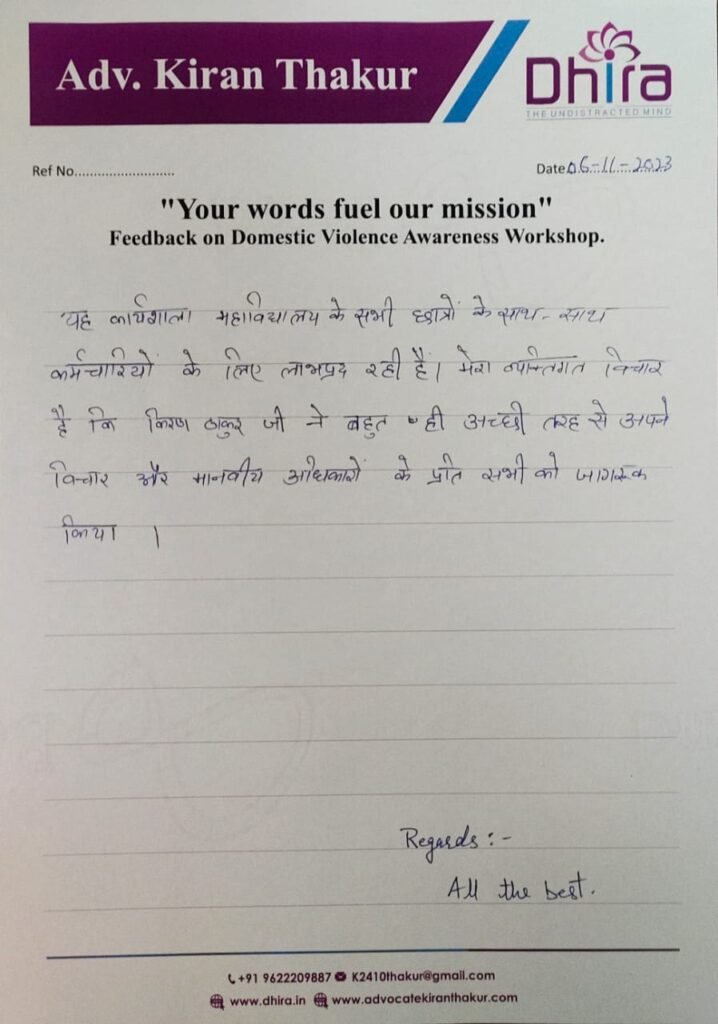 Adv. Kiran Thakur
Dhira
THE UNDISTRACTED MIND
Ref No..........................
Date 06-11-2023
"Your words fuel our mission"
Feedback on Domestic Violence Awareness Workshop.
यह कार्यशाला महाविद्यालय के सभी छात्रों के साथ-साथ
कर्मचारियों के लिए लाभप्रद रही है। मेरा व्यक्तिगत विचार
है कि किरण ठाकुर जी ने बहुत ही अच्छी तरह से अपने
विचार और मानवीय अधिकारों के प्रति सभी को जागरूक
किया ।
Regards :-
All the best.
+91 9622209887 K2410thakur@gmail.com
www.dhira.in www.advocatekiranthakur.com